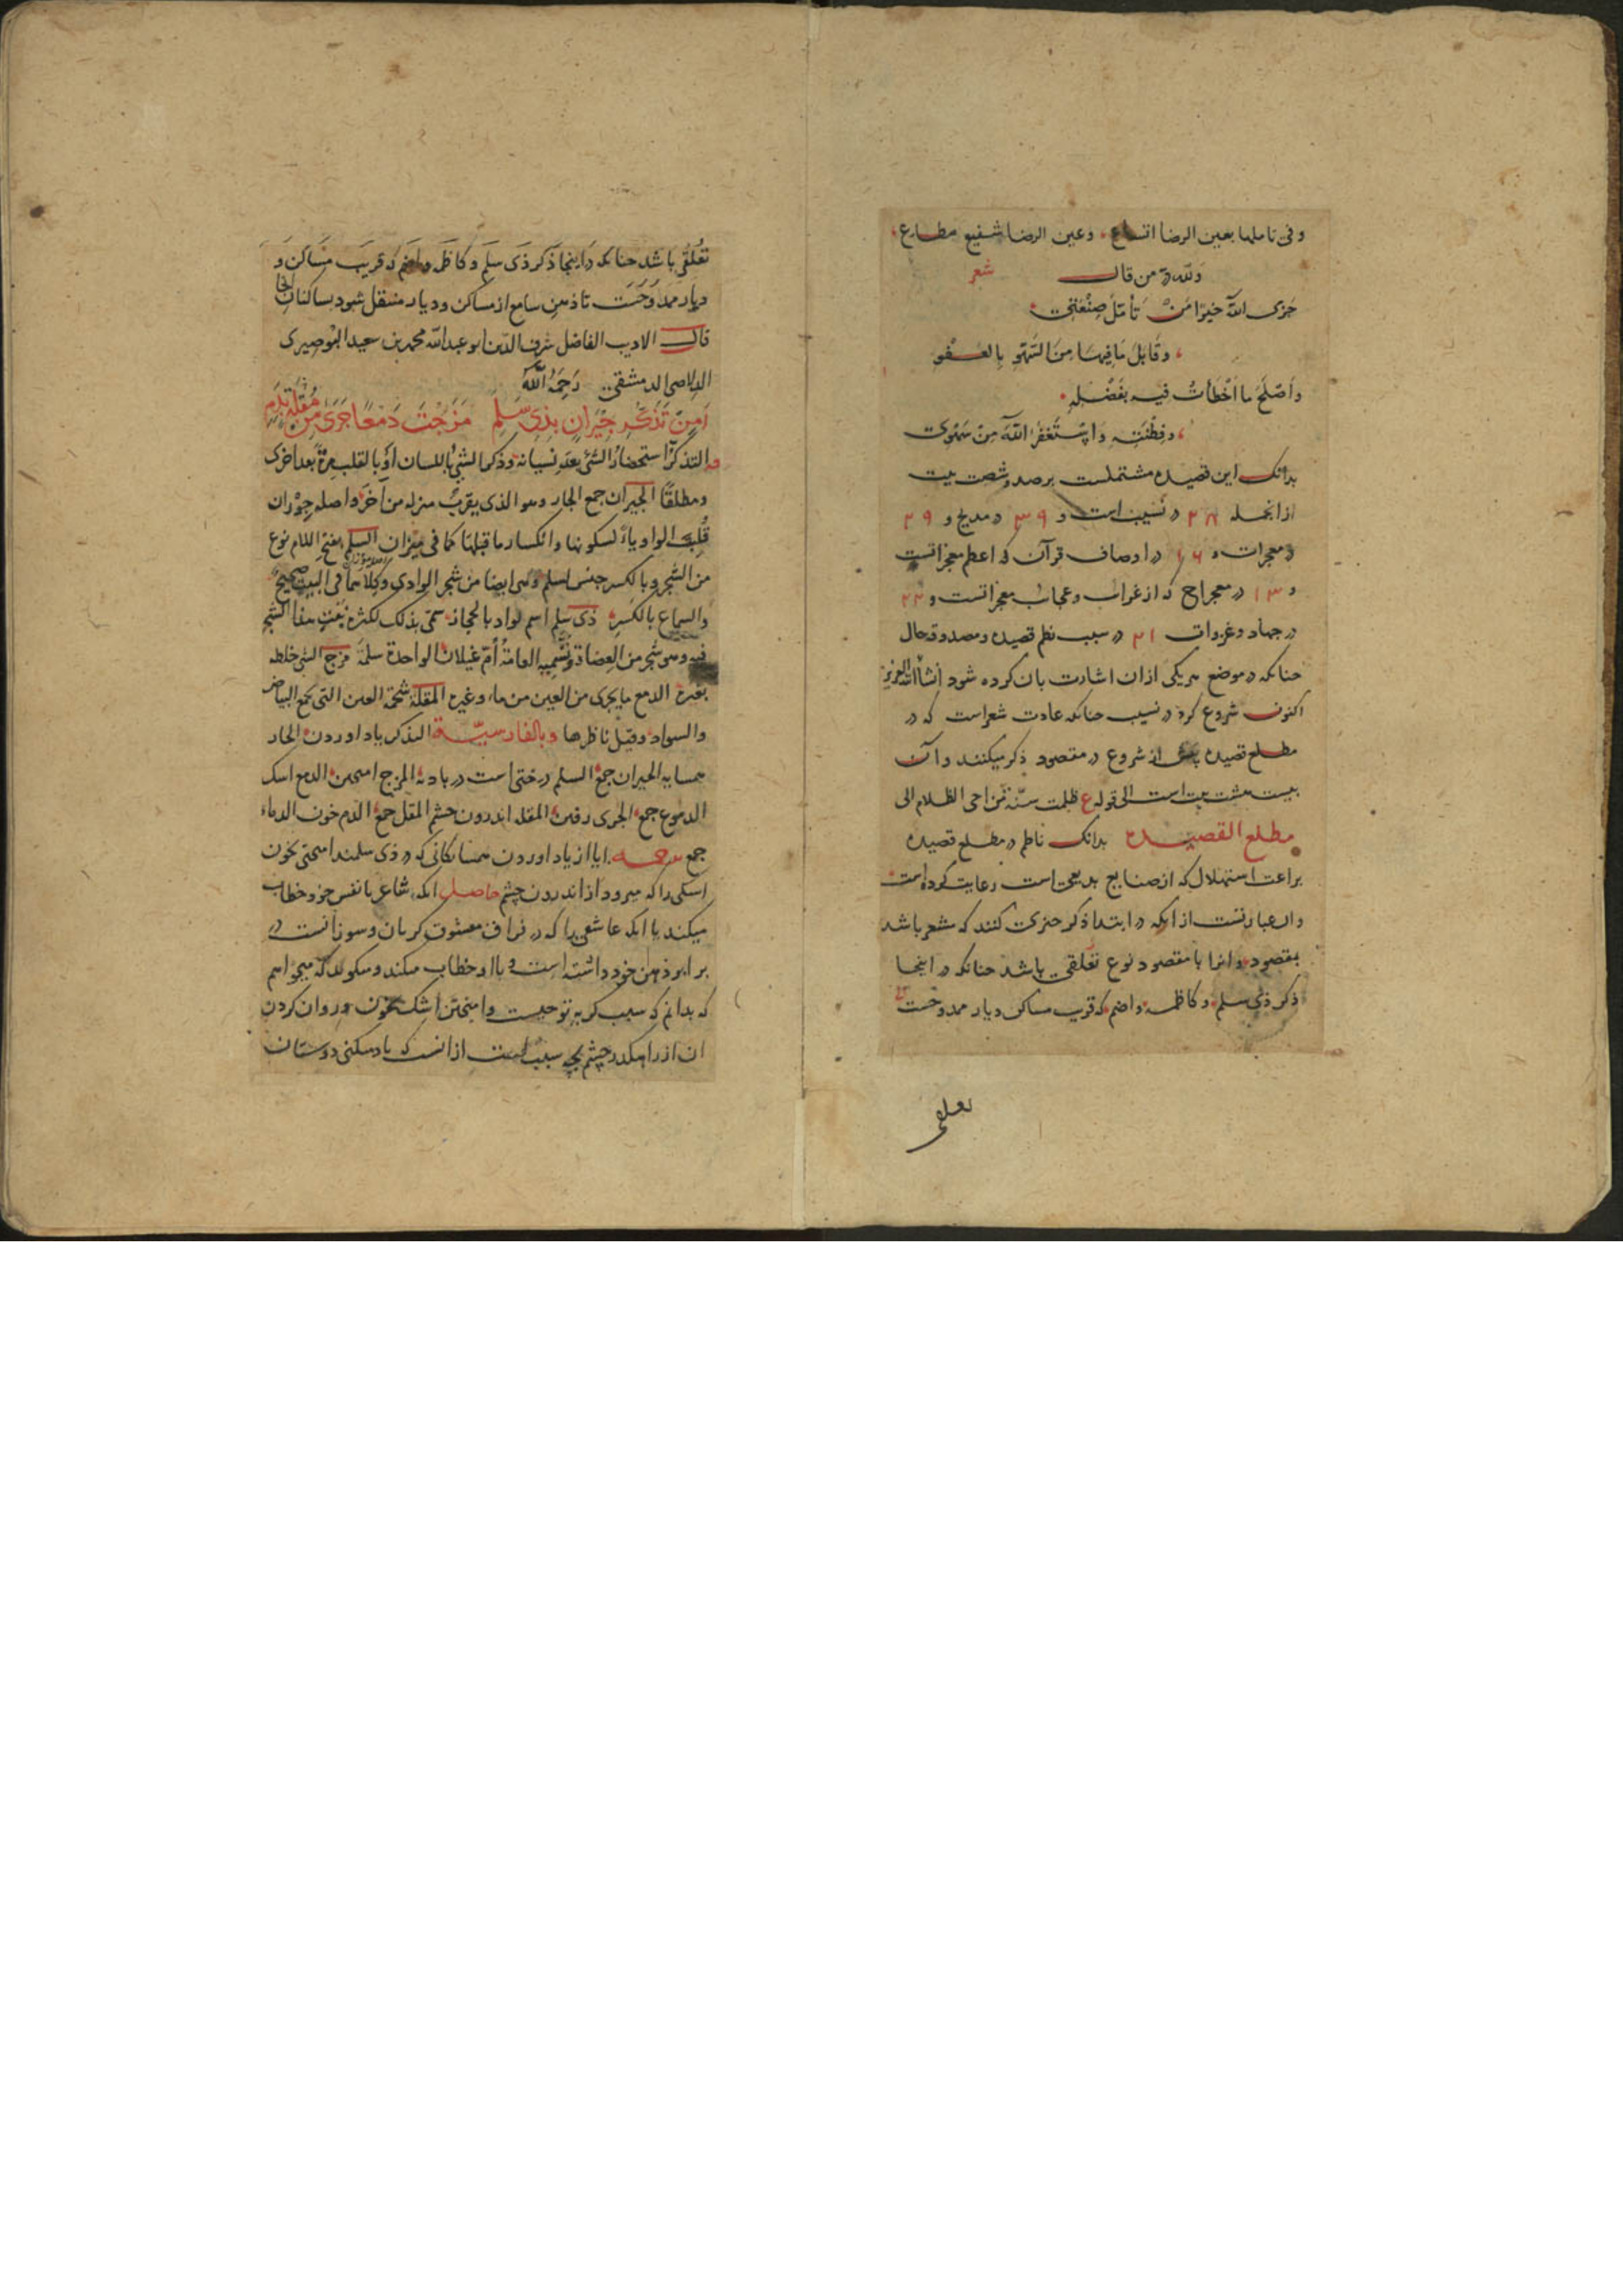 وفی تاملها بعین الرضا اتساع وعین الرضا شفیع مطاع
ولله در من قال شعر
جَزَى اللّٰه خیرًا مَنْ تَأمّلَ صنْعَتِی
وقَابَلَ مَا فِیهَا مِنَ السَّهْوِ بِالعَفْوِ
وأصْلَحَ ما أخْطَأتُ فیهِ بفَضْلِهِ
وفِطْنَتِهِ وَاسْتَغْفَرَ اللّٰهَ مِنْ سَهْوِی
بدانک این قصیده مشتملست بر صد وشصت بیت
ازانجمله ٢٨ در نسیب است و ٣٩ در مدیح و ٢٩
در معجزات و ١٦ در اوصاف قرآن که اعظم معجزاتست
و ١٣ در معراج که از غرایب وعجایب معجزاتست و ٢٣
در جهاد وغزوات ٢١ در سبب نظم قصیده ومصدوقه حال
حنانکه در موضع هریکی ازان اشارت بان کرده شود انشاء الله العزیز
اکنون شروع کرد در نسیب حنانکه عادت شعراست که در
مطلع قصیده پیش از شروع در مقصود ذکر میکنند وآن
بیست هشت بیت است الی قوله ع ظلمت سنّة مَن احیی الظلام الی
مطلع القصیده بدانک ناظم در مطلع قصیده
براعت استهلال که از صنایع بدیعی است رعایت کرده است
وان عبارتست از انکه در ابتدا ذکر چیزی کنند که مشعر باشد
بمقصود وانرا با مقصود نوع تعلّقی باشد حنانکه در اینجا
ذکر ذی سلم وکاظمه واضم که قریب مساکن ودیار ممدوحست
تعلقی
تعلّقی باشد حنانکه در اینجا ذکر ذی سلم وکاظمه واضم که قریب مساکن و
دیار ممدوحست تا ذهن سامع از مساکن ودیار منتقل شود بساکنان انجا
قال الادیب الفاضل شرف الدّین ابو عبدالله محمد بن سعید البُوصیری
الدلاصی الدمشقی رَحِمَهُ اللّٰه
أمِنْ تَذَكُّرِ جِیْرَانٍ بِذِی سَلَمٍ مَزَجْتَ دَمْعًا جَرَى مِنْ مُقْلَةٍ بِدَمِ
التذکّر استحضارُ الشئ بعد نسیانه وذکر الشئ باللسان او بالقلب مرة بعد اخری
ومطلقًا الجیران جمع الجار وهو الذی یقربُ منزله من آخَرَ واصله جِوْران
قُلِبَتِ الواو یاءً لسکونها وانکسار ما قبلها کما فی میزان السلم بفتح اللام نوع
من الشجر وبالکسر جنس اسلم وهی ایضا من شجر الوادی وکِلاهما فی البیت صحیح
والسماع بالکسر ذی سلم اسم لواد بالحجاز سمّی بذلک لکثرة نبت هذا الشجر
فیه وهو شجر من العِضاة وتُسَمّیه العامّةُ أمّ غیلان الواحدة سلمَة مزج الشئ خلطه
بغیره الدمع ما یجری من العین من ماء وغیره المقلة شحمة العین التی تجمع البیاض
والسواد وقیل ناظرها وبالفارسیّة التذکر یاد اوردن الجار
همسایه الجیران جمع السلم درختی است در بادیه المزج امیختن الدمع اسک
الدموع جمع الجری رفتن المقله اندرون چشم المقل جمع الدم خون الدماء
جمع ترجمه ایا از یاد اوردن همسایکانی که در ذی سلمند امیختی بخون
اسکی را که میرود از اندرون چشم حاصل انکه شاعر با نفس خود خطاب
میکند یا انکه عاشقی را که در فراق معشوق کریان وسوزانست در
برابر ذهن خود داشته است وبا او خطاب میکند ومیکوید که میخواهم
که بدانم که سبب کریه تو حیست وامیختن اشک بخون وروان کردن
ان از راهکذر چشم بچه سبب است از انست که یاد میکنی دوستان